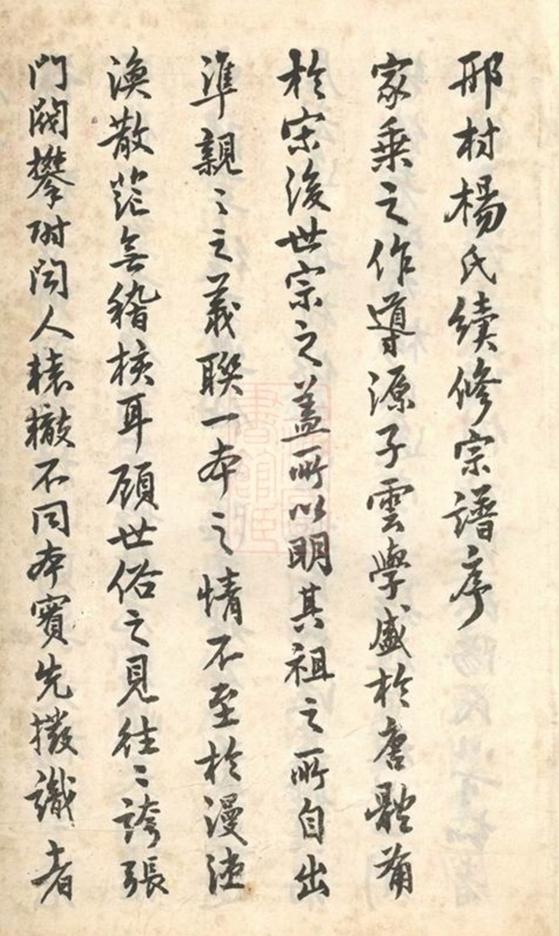 邢村楊氏續修宗譜序
家乘之作導源子雲學盛於唐體備
於宋後世宗之盖所以明其祖之所自出
準親〻之義聯一本之情不至於漫
渙散茫無稽核耳顧世俗之見往〻誇張
門閥攀附聞人轅轍不同本實先撥識者